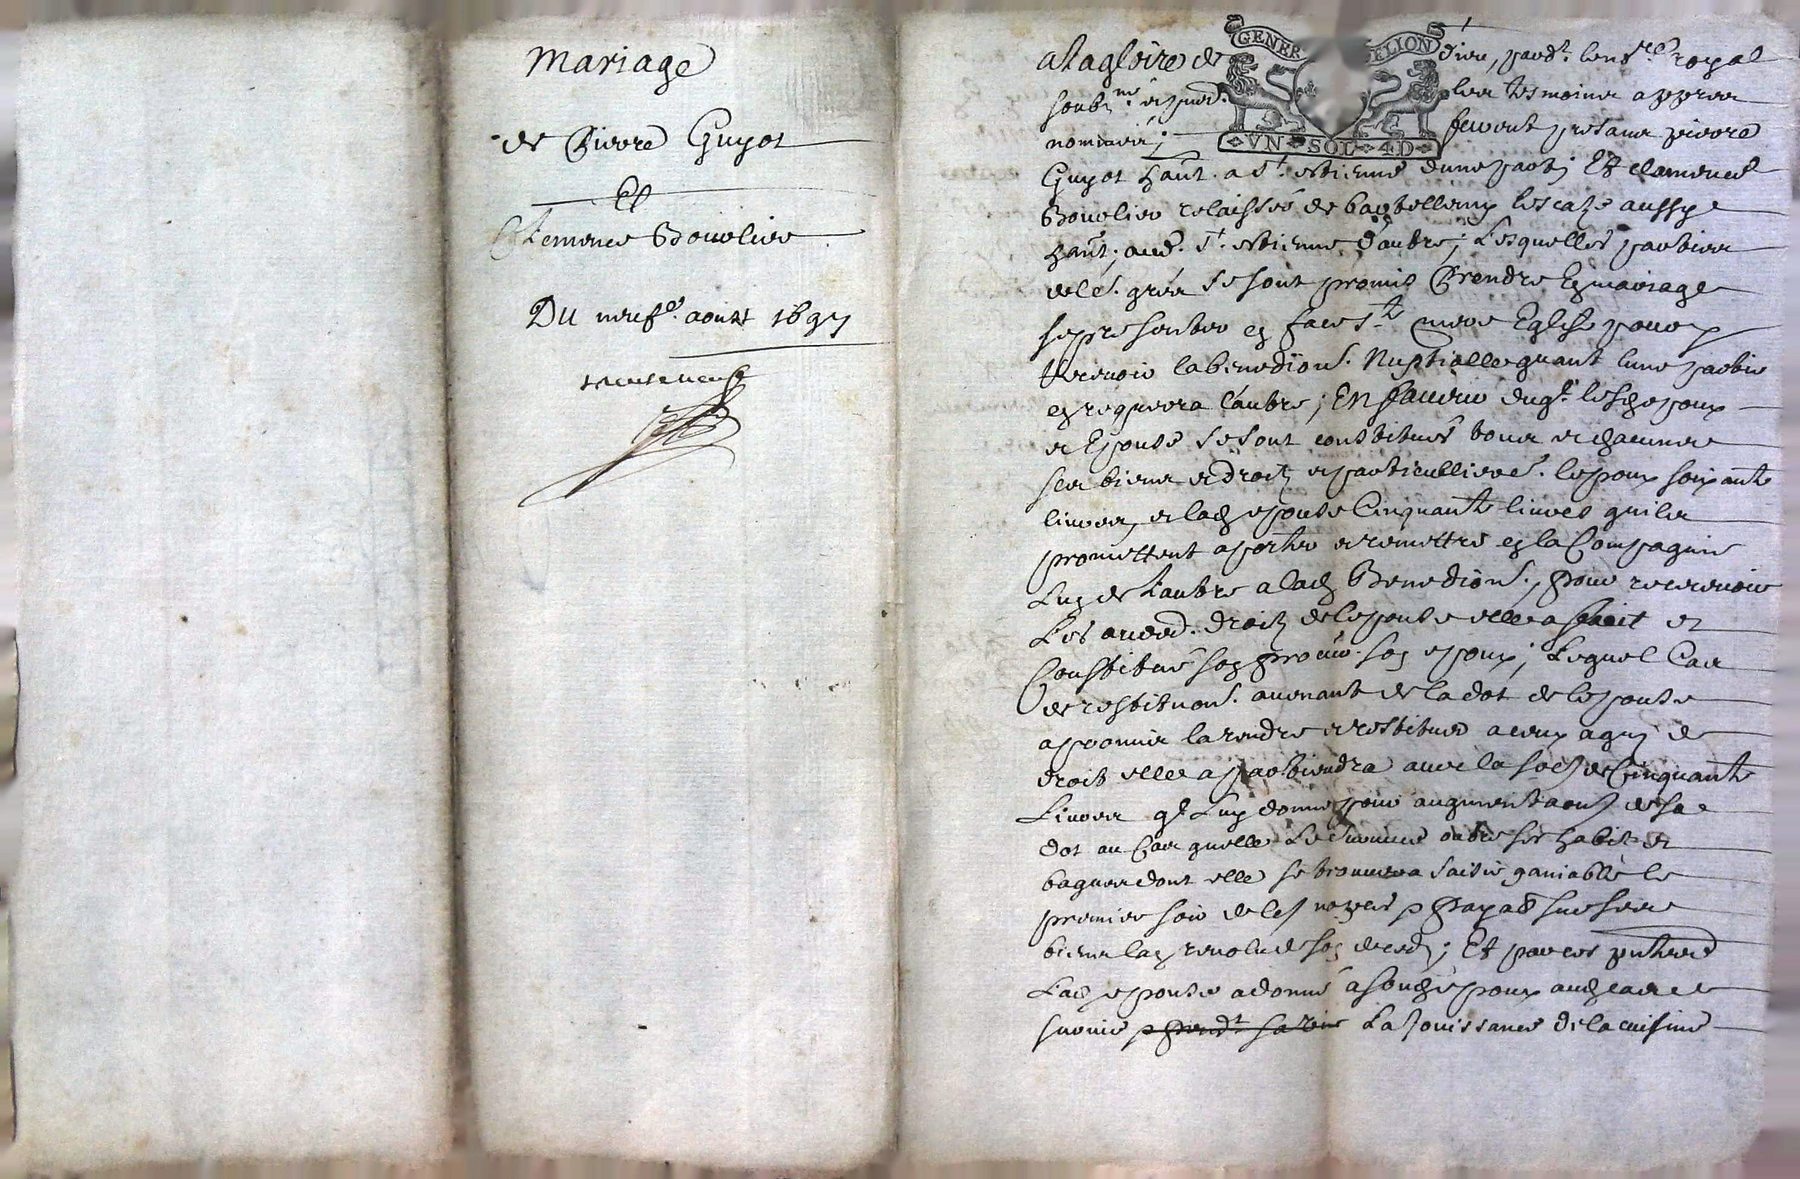 Mariage
de Pierre Guyot
Et
Clemence Bouolier
Du neufe. aoust 1697
alagloire de dieu, pard.t len.re royal
soubz.ne les tesmoins appres
nommés; feurent presans pierre
Guyot hant. a St. estienne dune part; Et clemence
Bouolier relaissée de bartellemy lescaze aussy
hant; aud. St. estienne dautre; Lesquelles parties
de se sont promis Prendre En mariage
se presenter en face Ste mere Eglise pour y
recevoir la benedion. Nuptialle quant lune partie
en requerra lautre; En faveur duql. lesd epoux
et Epouse se sont constitues tous et chacuns
ses biens et droits et particullieret. lepoux soixante
livres, et lad epouse Cinquante livres quils
promettent aporter et remettre en la Compagnie
Lun de Lautre a lad Benedion., pour recevoir
Les susd. droits de lepouse elle a fait et
Constitué son procur. son epoux; Lequel Cas
de restituon. avenant de la dot de lepouse
a promis la rendre et restituer a ceux a qui de
droit elle apartiendra avec la some de Cinquante
Livres ql Luy donne pour augmentaon de sa
dot au Cas quelle Le survive outre ses habits et
bagues dont elle se trouvera saisie
premier
biens lan revolu de son deced; Et par ces
Lad epouse a donné a soud epoux aud cas de
survie La Jouissance de la cuisine
GENER ELION
VN SOL 4D